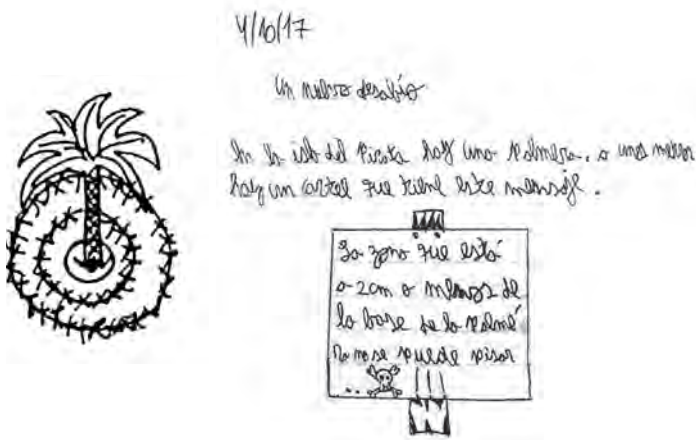 4/10/17
Un nuevo desafío
En la isla del Pirata hay una palmera. a unos metros
hay un cartel que tiene este mensaje.
La zona que está
a 2cm o menos de
la base de la palme
ra no se puede pisar
...